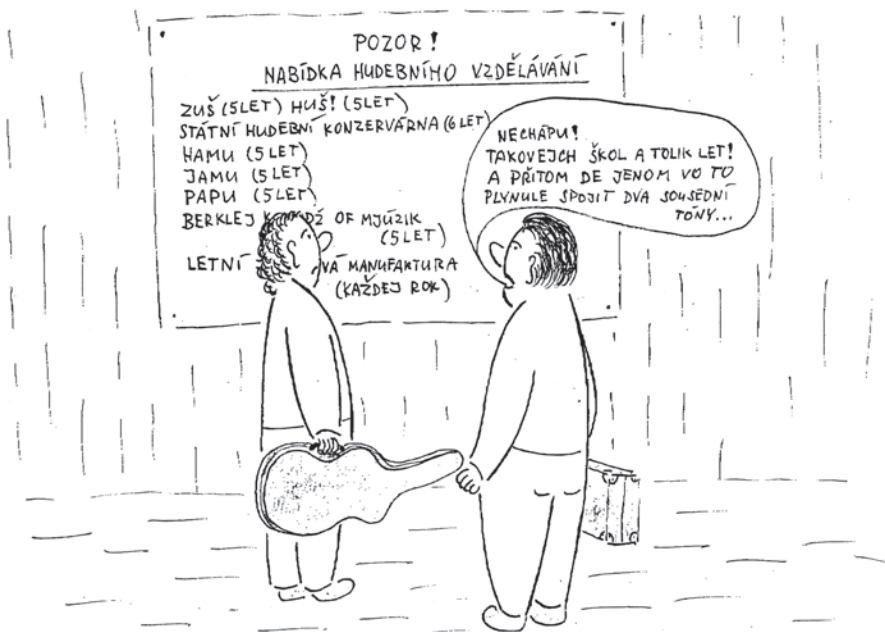 POZOR!
NABÍDKA HUDEBNÍHO VZDĚLÁVÁNÍ
ZUŠ (5LET) HUŠ! (5LET)
STÁTNÍ HUDEBNÍ KONZERVÁRNA (6 LET)
HAMU (5 LET)
JAMU (5 LET)
PAPU (5 LET)
BERKLEJ OF MJÚZIK
(5 LET)
LETNÍ VÁ MANUFAKTURA
(KAŽDEJ ROK)
NECHÁPU!
TAKOVEJCH ŠKOL A TOLIK LET!
A PŘITOM DE JENOM VO TO
PLYNULE SPOJIT DVA SOUSEDNÍ
TÓNY...